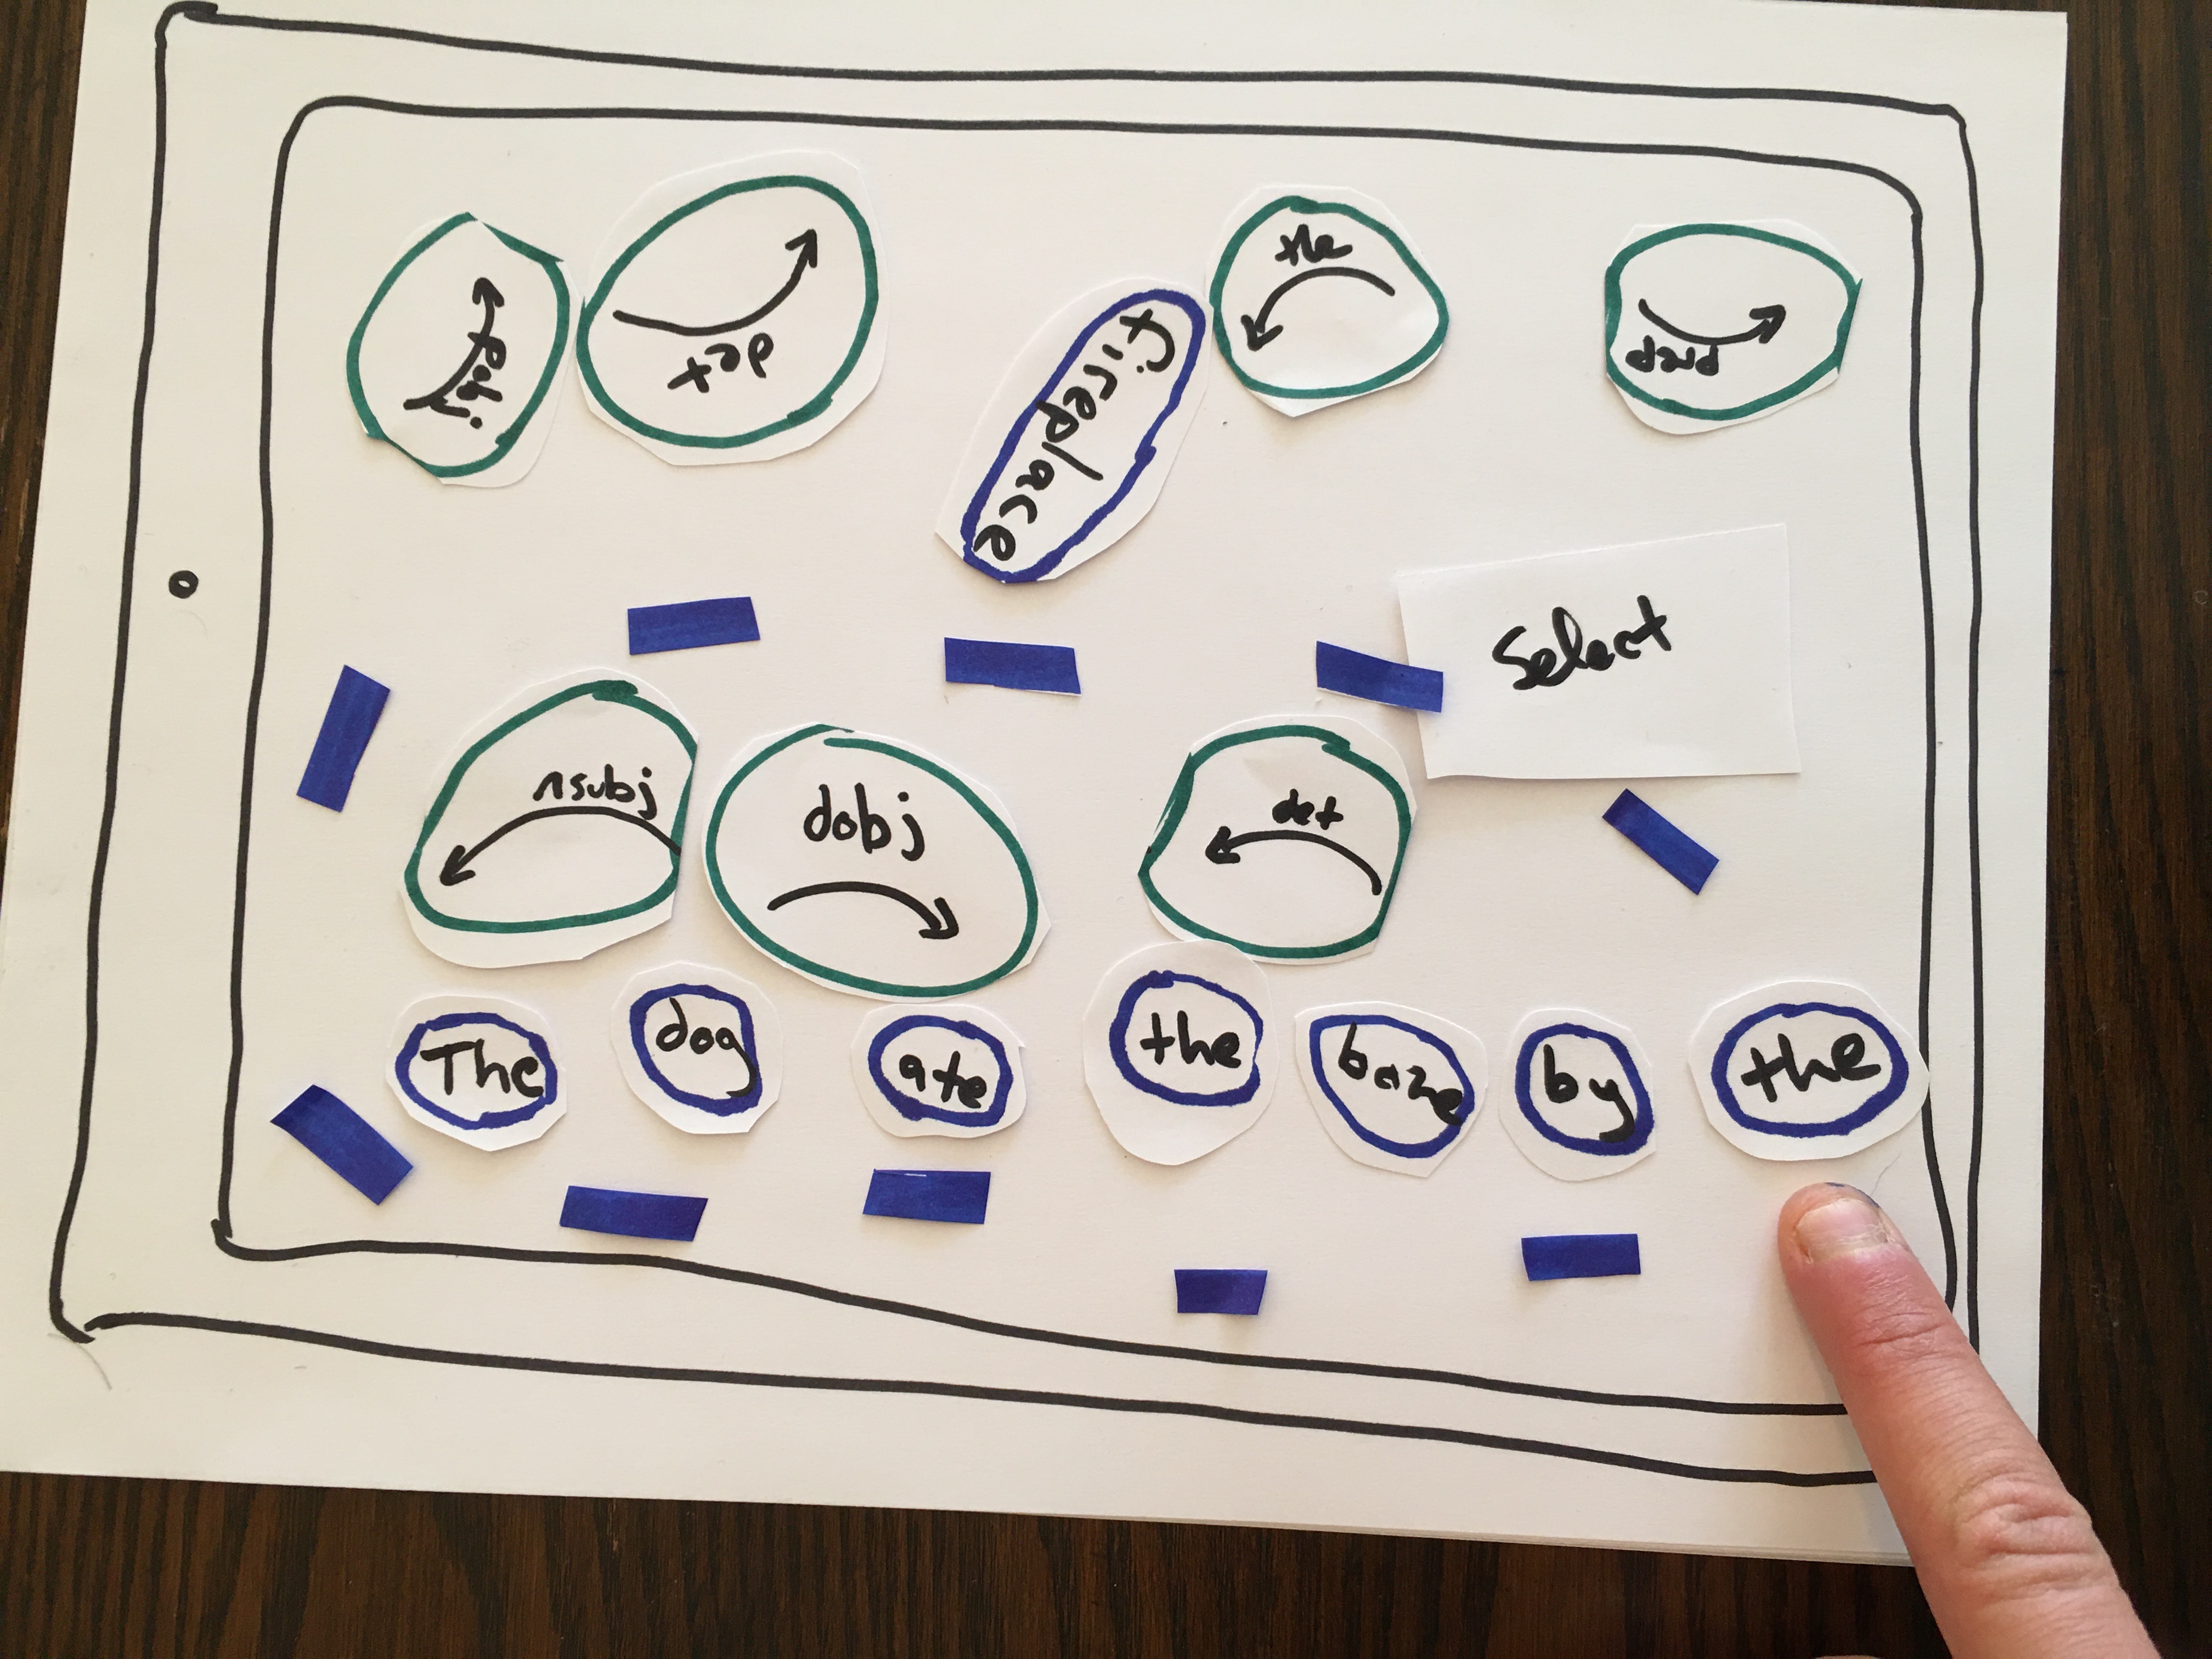 pobj
det
fireplace
the
prep
Select
nsubj
dobj
det
The dog ate the bone by the